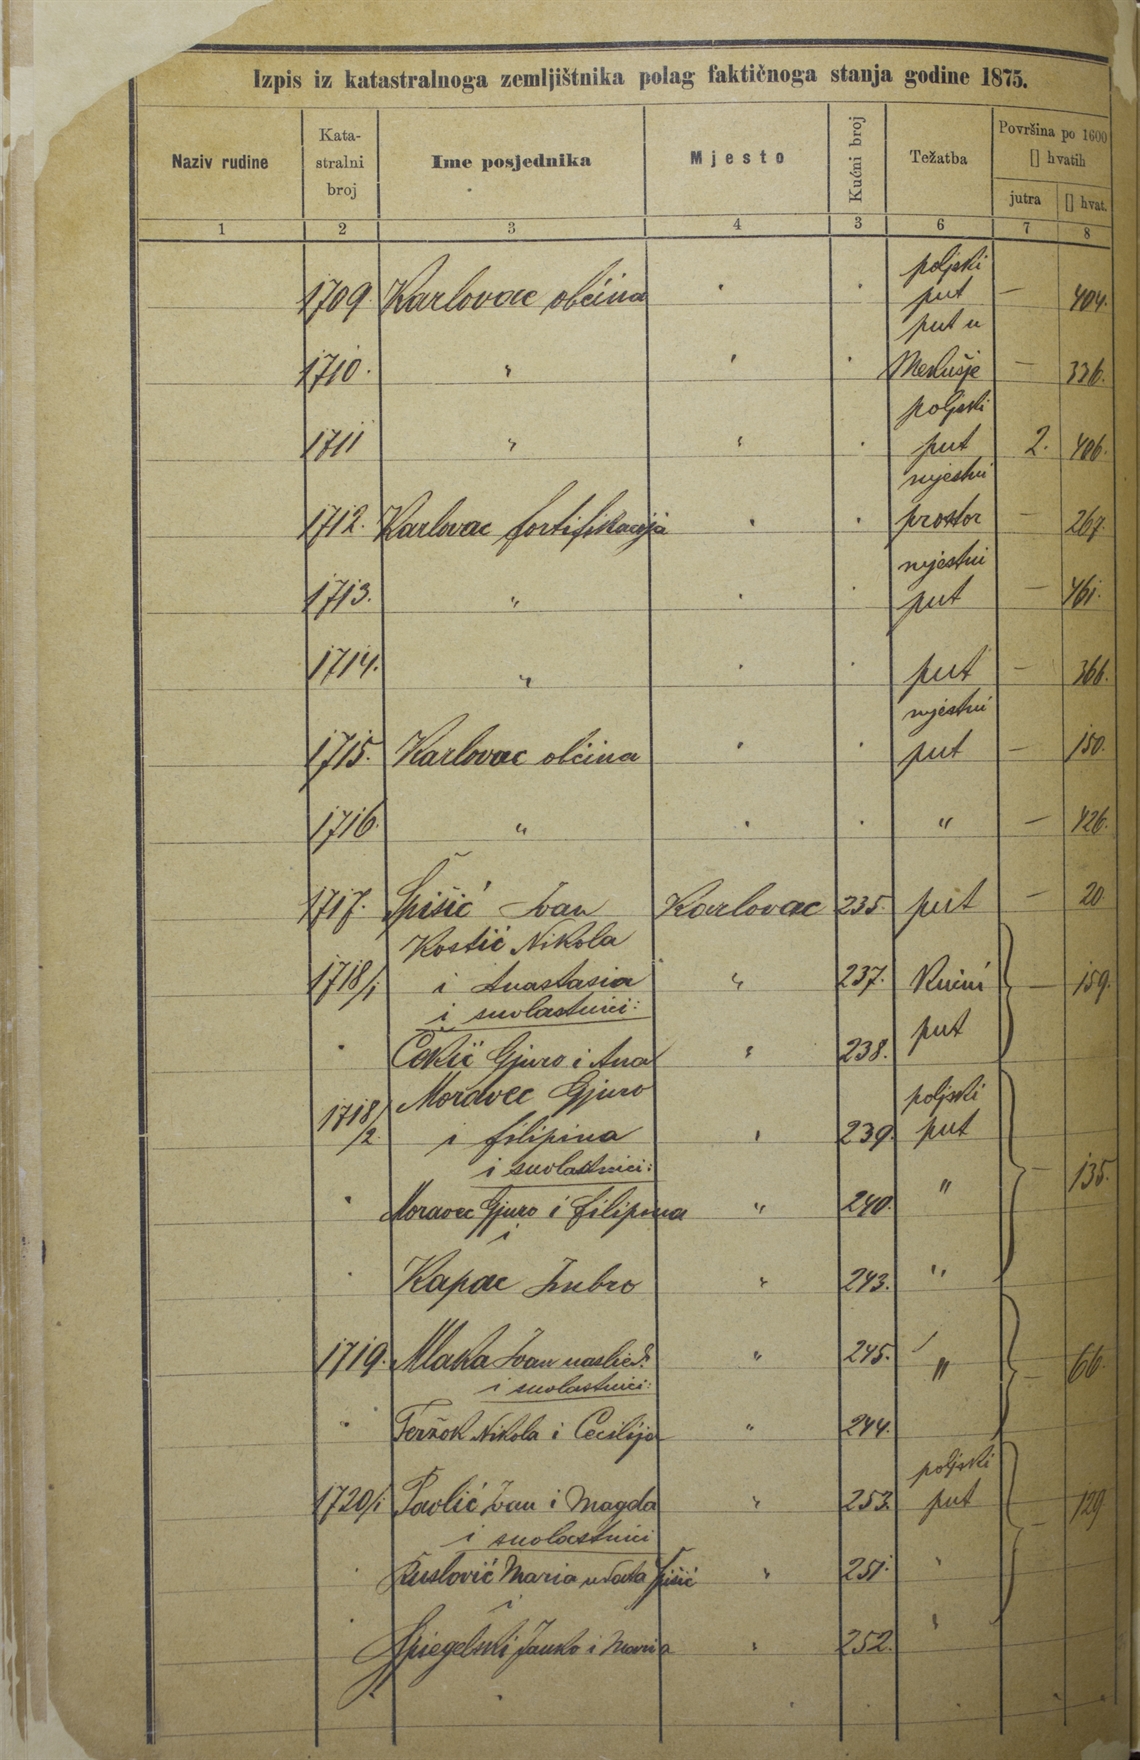 Izpis iz katastralnoga zemljištnika polag faktičnoga stanja godine 1875.
Naziv rudine
Kata-
stralni
broj
Ime posjednika
Mjesto
Kućni broj
Težatba
Površina po 1600
[] hvatih
jutra
[] hvat.
1 2 3 4 3 6 7 8
poljski
1709. Karlovac občina " " put — 404.
put u
1710. " " " Mekušje — 336.
poljski
1711 " " " put 2. 406.
mjestni
1712. Karlovac fortifikacija " " prostor — 267.
mjestni
1713. " " " put — 461.
1714. " " " put — 366.
mjestni
1715. Karlovac občina " " put — 150.
1716. " " " " — 426.
1717. Špišić Ivan Karlovac 235. put — 20
Kostić Nikola
1718/1 i Anastasia " 237. Kućni — 159.
i suvlastnici:
put
Gjuro i Ana " 238.
Moravec Gjuro
poljski
1718/2. i Filipina " 239. put
i suvlastnici:
— 135.
" Moravec Gjuro i Filipina " 240. "
i
" Kapac " 243. "
1719. Mlaka Ivan naslied. " 245. " — 66
i suvlastnici:
" Teržok Nikola i Cecilija " 244.
poljski
1720/1 Pavlić Ivan i Magda " 253. put — 129
i suvlastnici
" Maria udata " 251. "
i
" Spiegelski Janko i Maria " 252. "